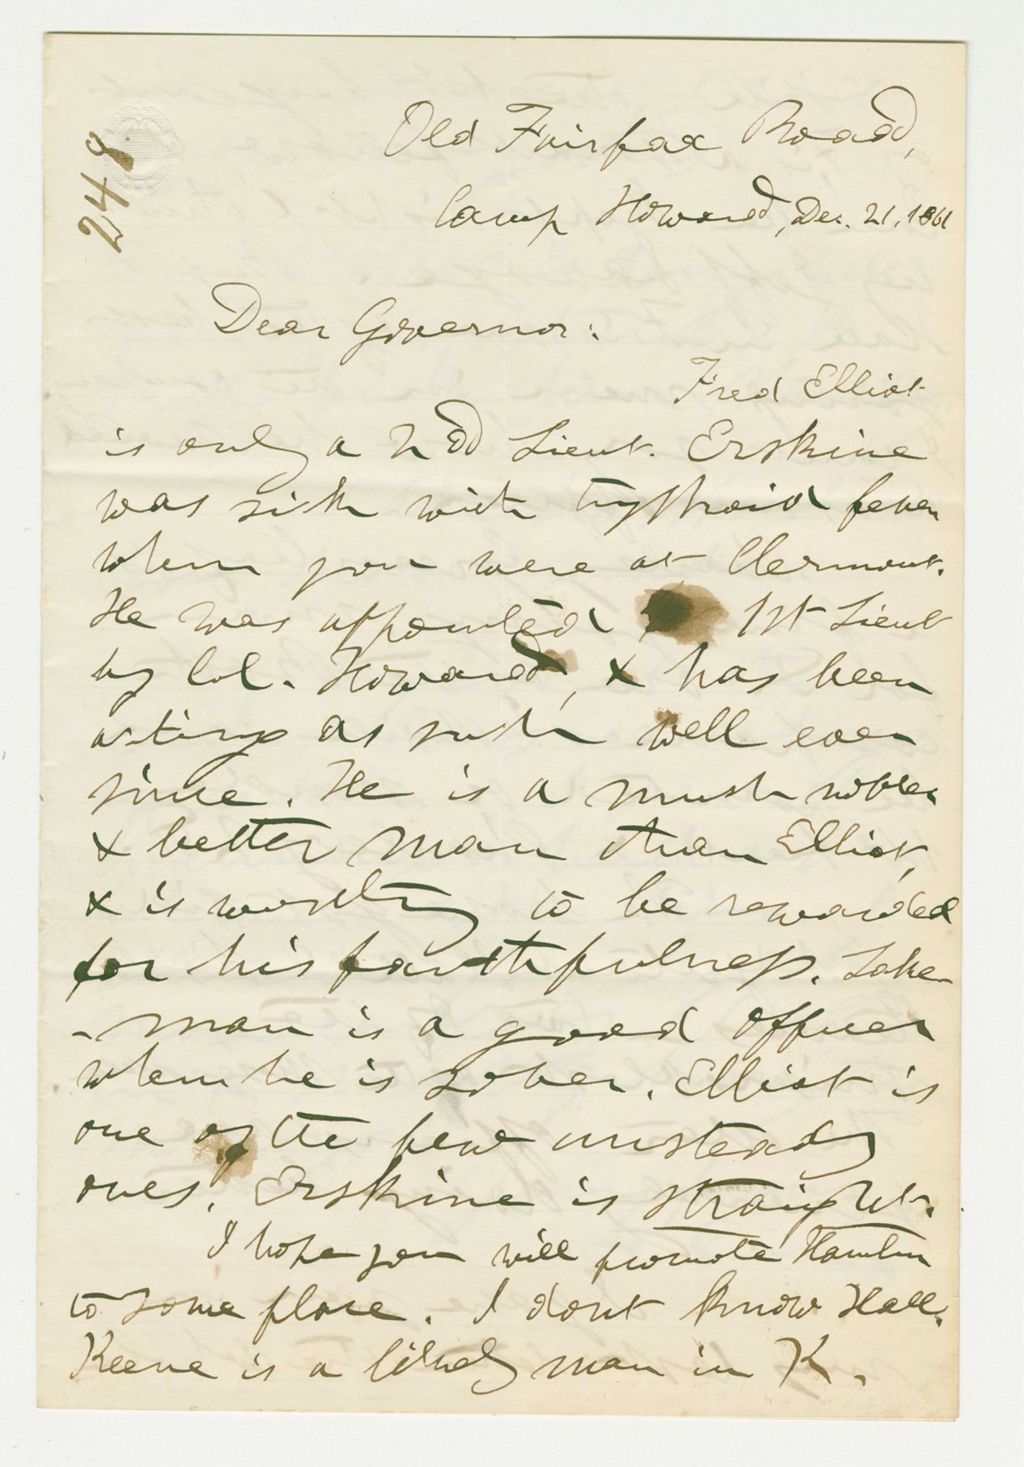 248
Old Fairfax Road,
Camp Howard, Dec. 21, 1861
Dear Governor:
Fred Elliot
is only a 2nd Lieut. Erskine
was sick with typhoid fever
when you were at Clermont.
He was appointed 1st Lieut
by Col. Howard, & has been
acting as such well ever
since. He is a much nobler
& better man than Elliot,
& is worthy to be rewarded
for his faithfulness. Lake-
-man is a good officer
when he is sober. Elliot is
one of the few unsteady
ones. Erskine is straight.
I hope you will promote Hamlin
to some place. I dont know Hall.
Keene is a likely man in K.